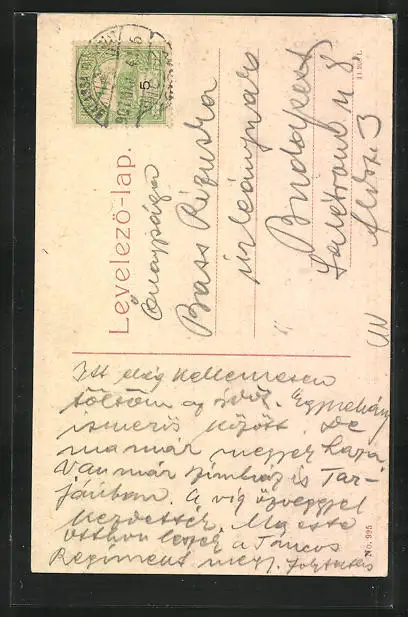 Levelező-lap.
Őnagysága
Bass Rézuska
úrleánynak
Budapest
u 8
5
Itt elég kellemesen
töltöm az időt. Egynehány
ismerős között. De
ma már megyek haza.
Van már színház is Tar-
jánban. A víg özveggyel
kezdették. Ma este
otthon leszek a Táncos
Regiment megy. folytatás
No. 995